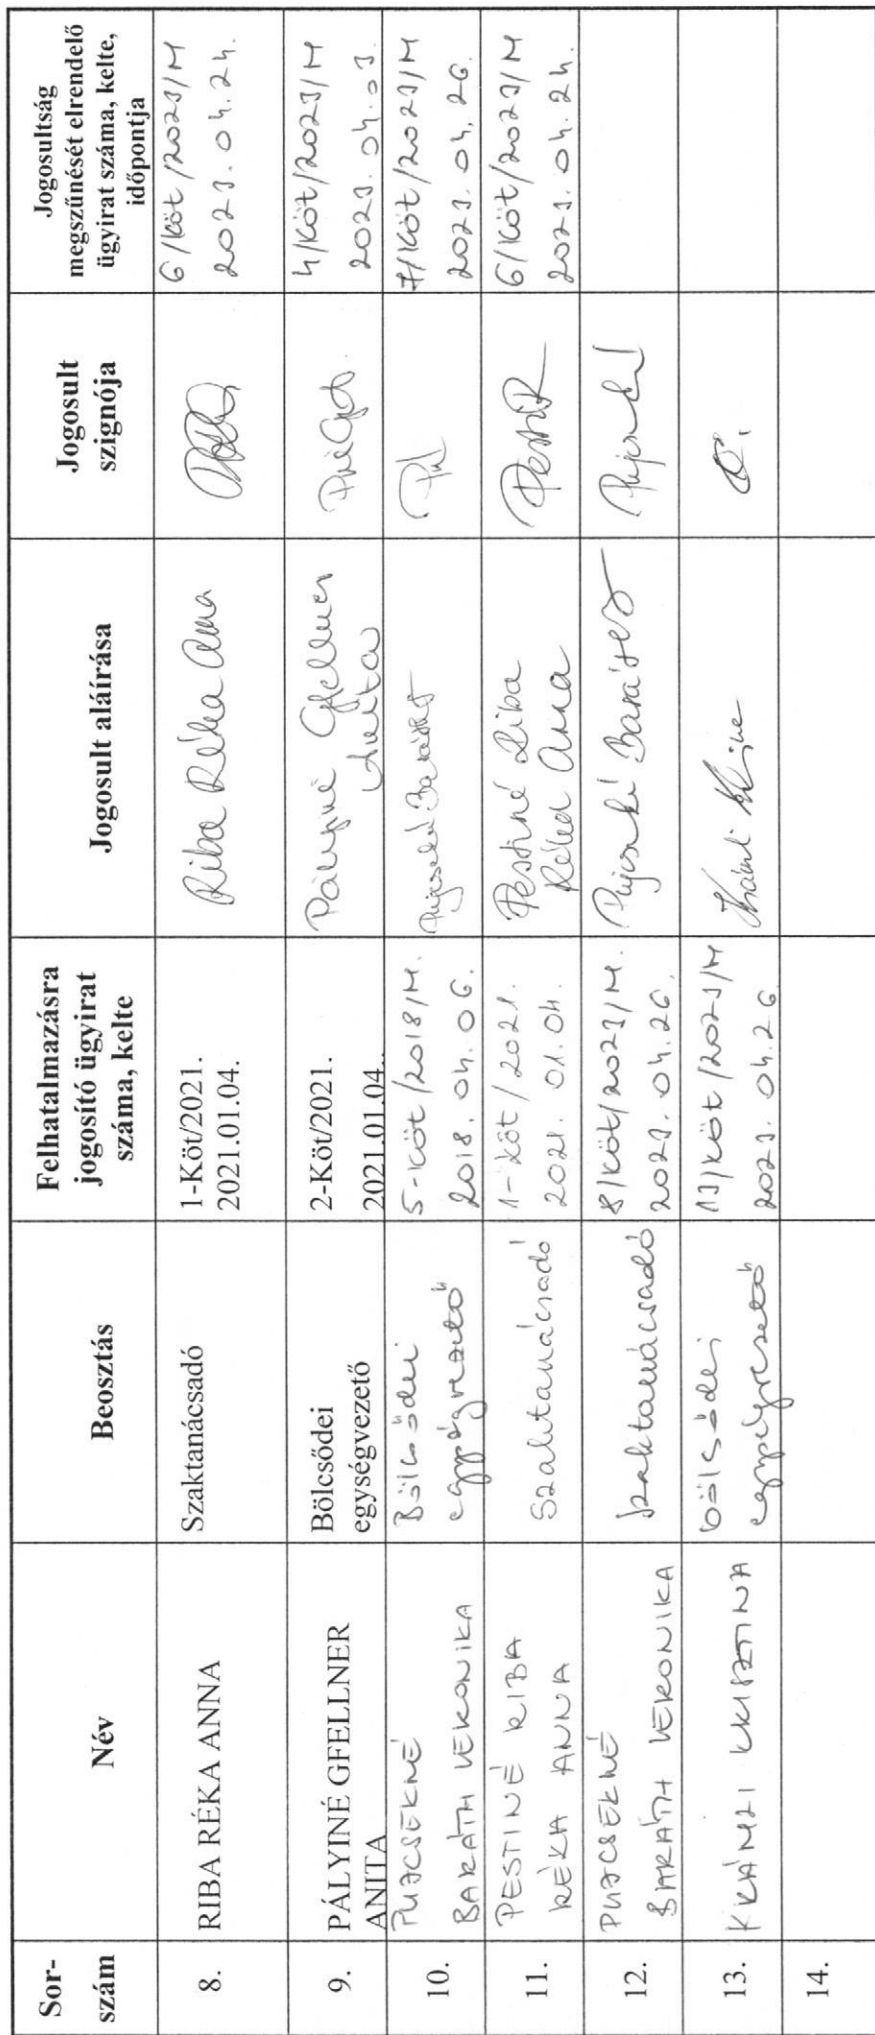 Sor-
szám
Név
Beosztás
Felhatalmazásra
jogosító ügyirat
száma, kelte
Jogosult aláírása
Jogosult
szignója
Jogosultság
megszűnését elrendelő
ügyirat száma, kelte,
időpontja
8.
RIBA RÉKA ANNA
Szaktanácsadó
1-Köt/2021.
2021.01.04.
Riba Réka Anna
6/Köt/2023/M
2023.04.24.
9.
PÁLYINÉ GFELLNER
ANITA
Bölcsődei
egységvezető
2-Köt/2021.
2021.01.04..
Pályiné Gfellner
Anita
4/Köt/2023/M
2023.04.03.
10.
PUJCSEKNÉ
BARÁTH VERONIKA
Bölcsődei
egységvezető
5-Köt/2018/M.
2018.04.06.
7/Köt/2023/M
2023.04.26.
11.
PESTINÉ RIBA
RÉKA ANNA
Szaktanácsadó
1-Köt/2021.
2021.01.04.
Pestiné Riba
Réka Anna
6/Köt/2023/M
2023.04.24.
12.
PUJCSEKNÉ
BARÁTH VERONIKA
szaktanácsadó
8/Köt/2023/M.
2023.04.26.
13.
KRÁMLI KRISZTINA
bölcsődei
egységvezető
13/Köt/2023/M
2023.04.26
14.